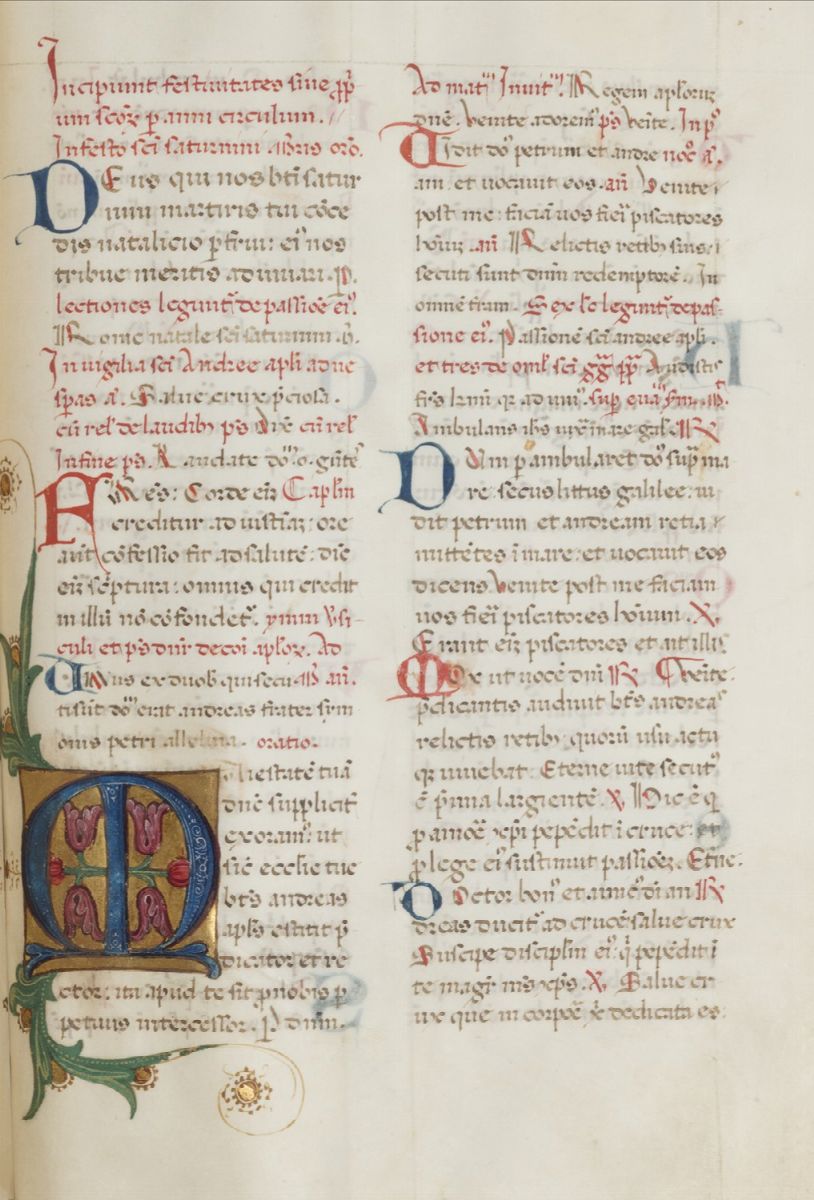 Incipiunt festiuitates siue ꝓpꝛi
um scõꝝ ꝑ anni circulum.
In festo scĩ saturnini mr̃is orõ.
DEus qui nos bt̃i satur
nini martiris tui cõce
dis natalicio ꝑfrui: eiꝰ nos
tribue meritis adiuuari. P.
lectiones legunt᷑ de passiõe eiꝰ.
Rome natale scĩ saturnini.
In uigilia scĩ Andree apl̃i ad ue
sꝑas añ. Salue crux p̃ciosa.
cũ rel̃ de laudibꝫ p̃s Dixit cũ rel̃
In fine p̃s. Laudate dõ. o. gẽtes
FRẽs: Corde eĩ Capl̃m
creditur ad iustiaꝫ: ore
aũt cõfessio fit ad salutẽ: dic̃
eĩ sc̃ptura: omnis qui credit
in illũ nõ cõfondet᷑. ymni ỹsi-
culi et p̃s dr̃ de cõi apl̃oꝝ. Ad
UNus ex duobꝫ qui secu M̃ añ.
ti sũt dom̃ erat andreas frater sym
onis petri alleluia. oratio.
Maiestatẽ tuã
dñe supplicit᷑
exoramꝰ: ut
sic̃ ecclie tue
bt̃s andreas
apl̃s extitit p̃
dicator et re
ctor: ita apud te sit ꝓ nobis ꝑ
petuus intercessor. P dñm.
Ad mat̃ Inuit̃. Regem apl̃oruꝫ
dñꝫ. Venite adoremꝰ p̃s Venĩte. In pº
UIdit dñs petrum et andre nocº añ.
am: et uocauit eos. añ Venite
post me: faciã uos fieri piscatores
hõiuꝫ. añ Relictis retibꝫ suis:
secuti sunt dñm redemptorẽ. In
omnẽ terram. Sex lc̃e legunt᷑ de pas-
sione eiꝰ. Passionẽ scĩ andree apl̃i.
et tres de omel̃ scĩ gg̃ pp̃ Audistis
fr̃s kr̃mi qꝛ ad uniꝰ. suꝑ euãg̃.
Ambulans ih̃s iuxta mare galileẽ R̃
DUm ꝑambularet dñs supra ma
re secus littus galilee: ui
dit petrum et andream retia
mittẽtes ĩ mare: et uocauit eos
dicens. Venite post me faciam
uos fieri piscatores hõinum. V̷.
Erant eĩ piscatores et ait illis.
MOx ut uocẽ dñi R̃ Venĩte.
p̃dicantis audiuit bt̃s andreas
relictis retibꝫ: quorũ usu actu
qꝫ uiuebat: Eterne uite secutꝰ
ẽ p̃mia largientẽ. V̷. Hic ẽ qͥ
ꝓ amorẽ xp̃i pepẽdit ĩ cruce: et
ꝓ lege eiꝰ sustinuit passiõeꝫ. Etñe.
DOctor bonꝰ et amicꝰ dĩ an R̃
dreas ducit᷑ ad crucẽ: salue crux
Suscipe disciplm̃ eiꝰ: qͥ pepẽdit ĩ
te magr̃ mẽs xp̃s. V̷. Salue cr
ux que in corpoẽ xp̃i dedicata es: